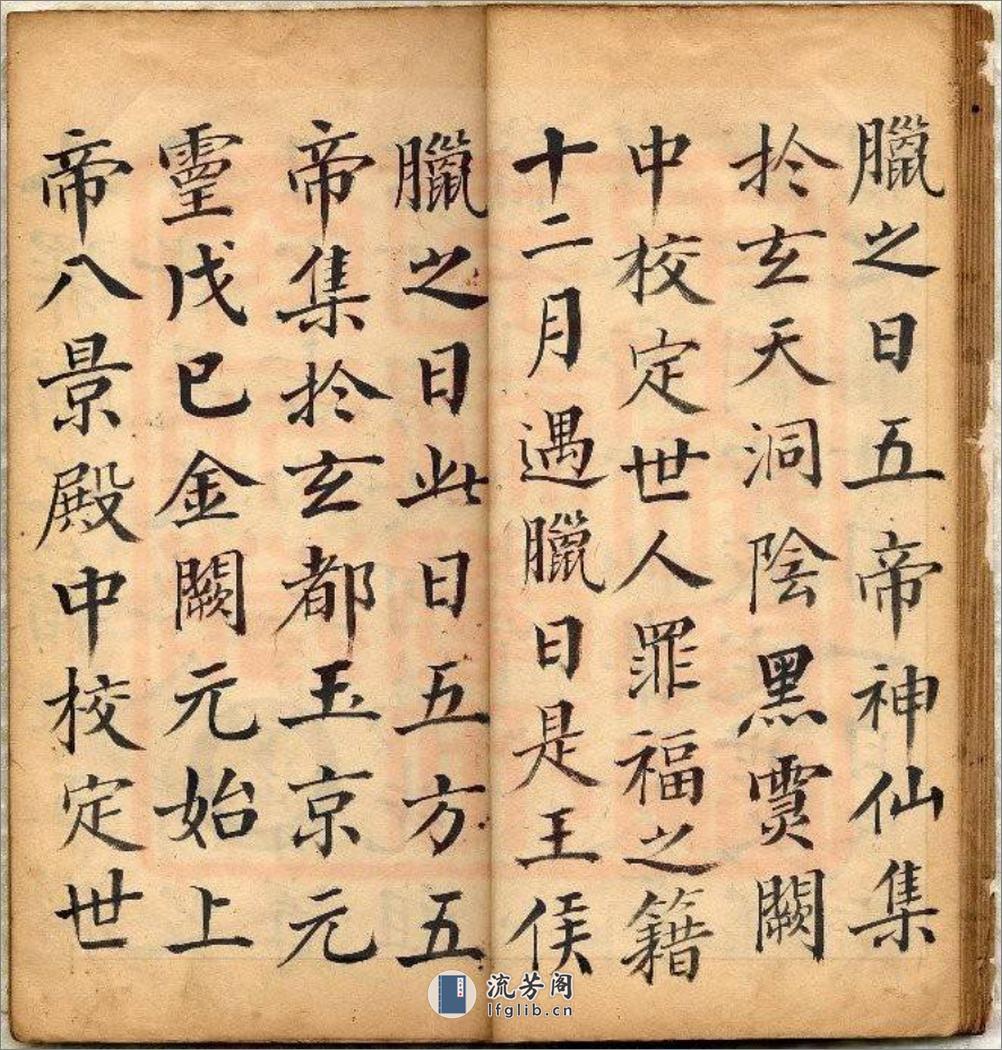 臘之日五帝神仙集
扵玄天洞陰黑霊闕
中校定世人罪福之籍
十二月遇臘日是王侯
臘之日此日五方五
帝集扵玄都玉京元
靈戊巳金闕元始上
帝八景殿中校定世
流芳阁
lfglib.cn